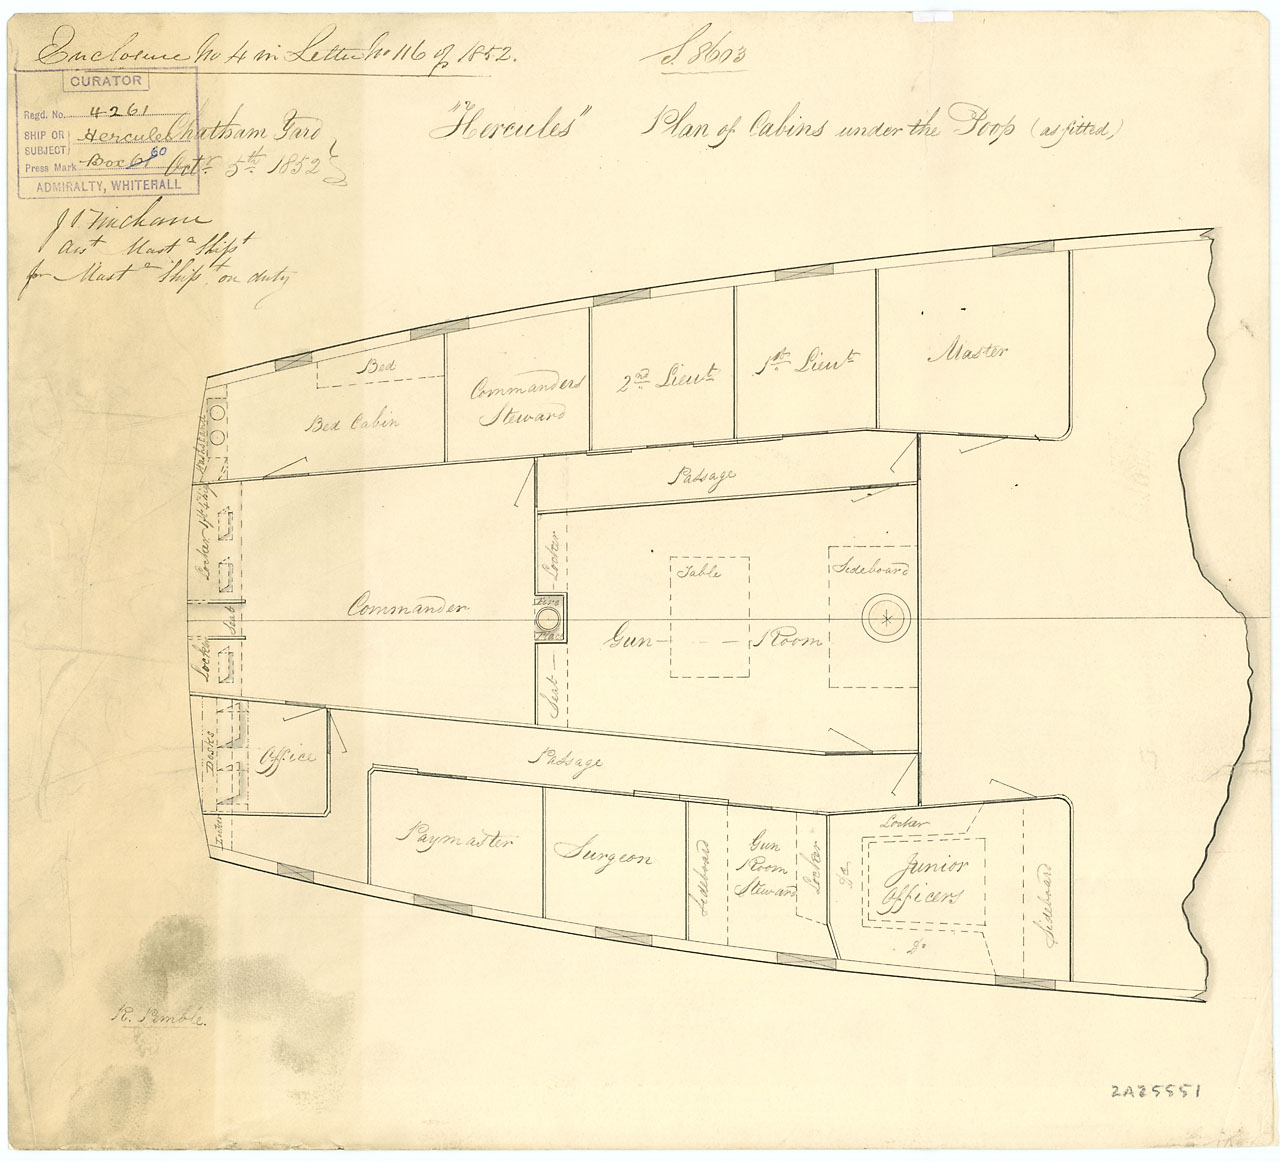 Enclosure No 4 in Letter No 116 of 1852.
S. 8603
CURATOR
Regd. No. 4261
SHIP OR SUBJECT Hercules
Press Mark Box 60
ADMIRALTY, WHITEHALL
Chatham Yard
Octr 5th 1852
"Hercules" Plan of Cabins under the Poop (as fitted)
J Fincham
Asst Mastr Shipt
for Mastr Shipt on duty
Bed
Bed Cabin
Commanders
Steward
2nd Lieut
1st Lieut
Master
Washstand
Passage
Locker
Locker
Seat
Locker
Commander
Fire
Place
Seat
Table
Sideboard
Gun Room
Desks
Office
Passage
Locker
Paymaster
Surgeon
Sideboard
Gun
Room
Steward
Locker
Do
Locker
Junior
Officers
Do
Sideboard
R. Pemble.
2A25551